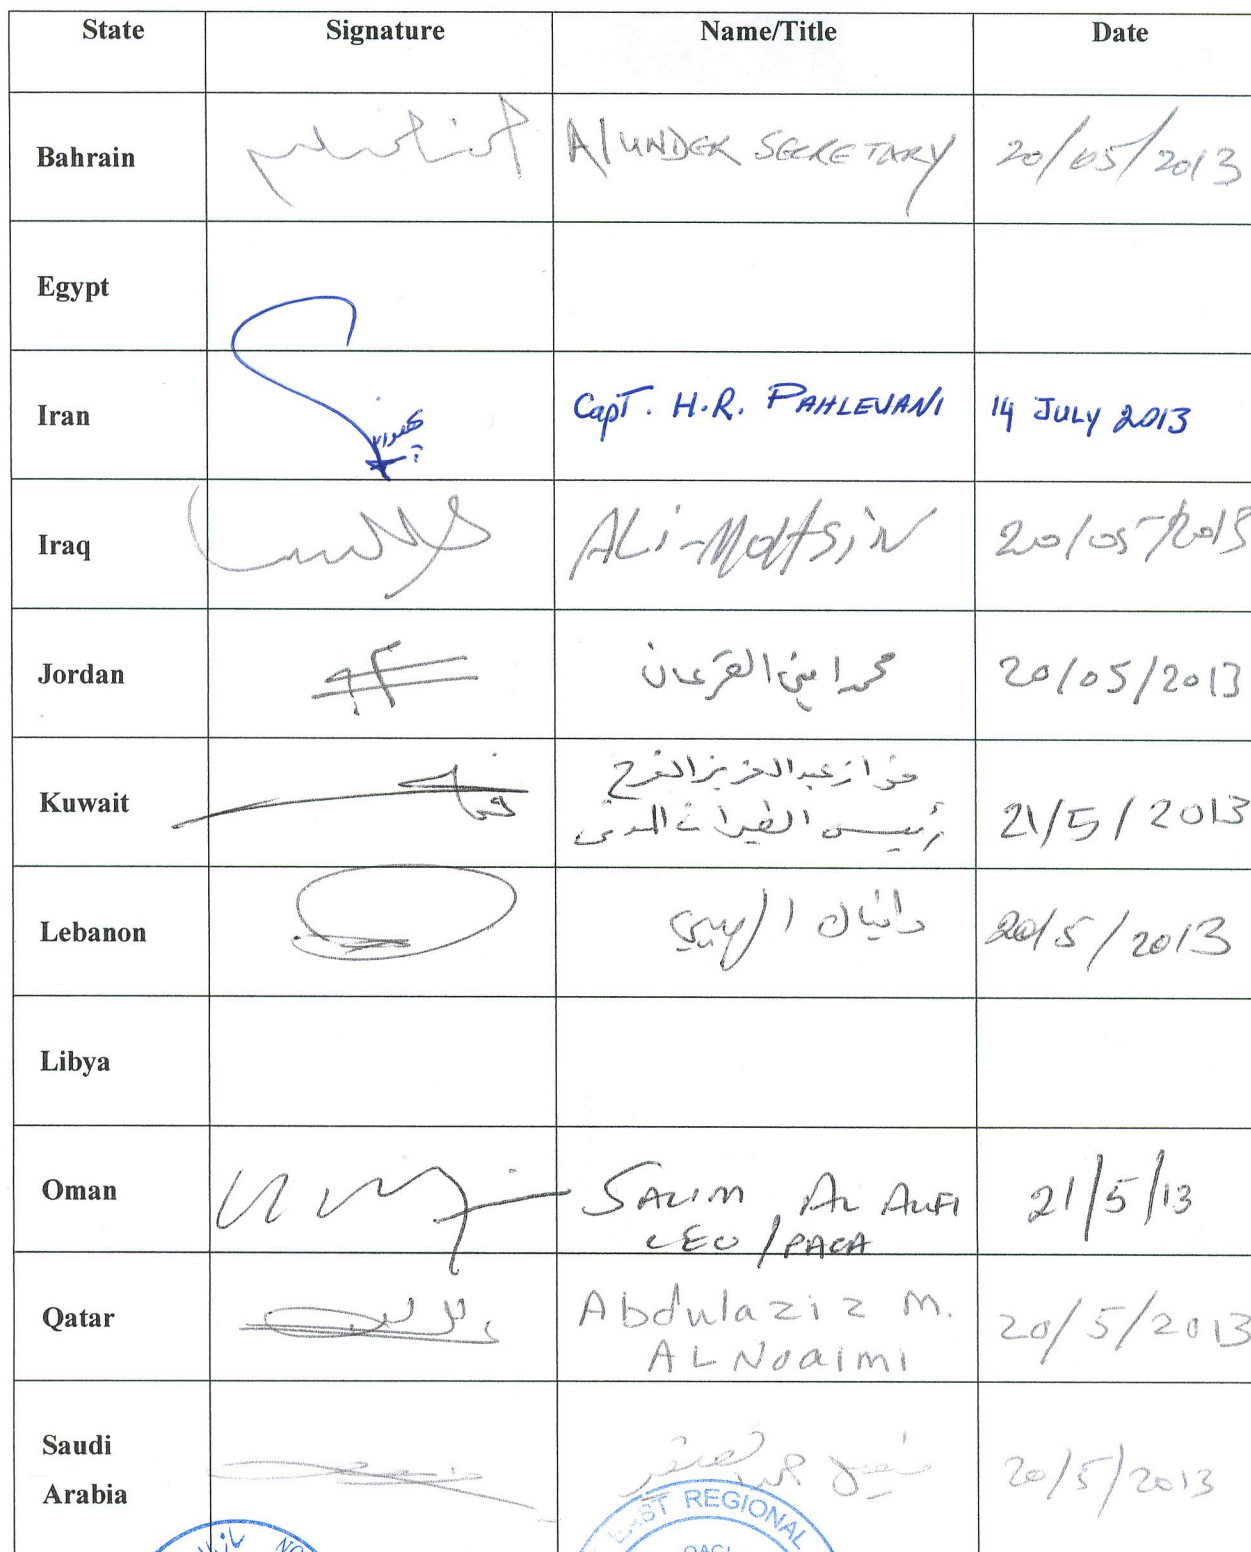 State Signature Name/Title Date
Bahrain A/UNDER SECRETARY 20/05/2013
Egypt
Iran Capt. H.R. PAHLEVANI 14 JULY 2013
Iraq ALi-MOHSiN 20/05/2013
Jordan محمد امين القرعان 20/05/2013
Kuwait فواز عبد العزيز الفرح 21/5/2013
رئيس الطيران المدني
Lebanon دانيال الهيبي 20/5/2013
Libya
Oman SALIM AL AUFI 21/5/13
CEO/PACA
Qatar Abdulaziz M. 20/5/2013
AL Noaimi
Saudi
Arabia 20/5/2013
EAST REGIONAL
OACI